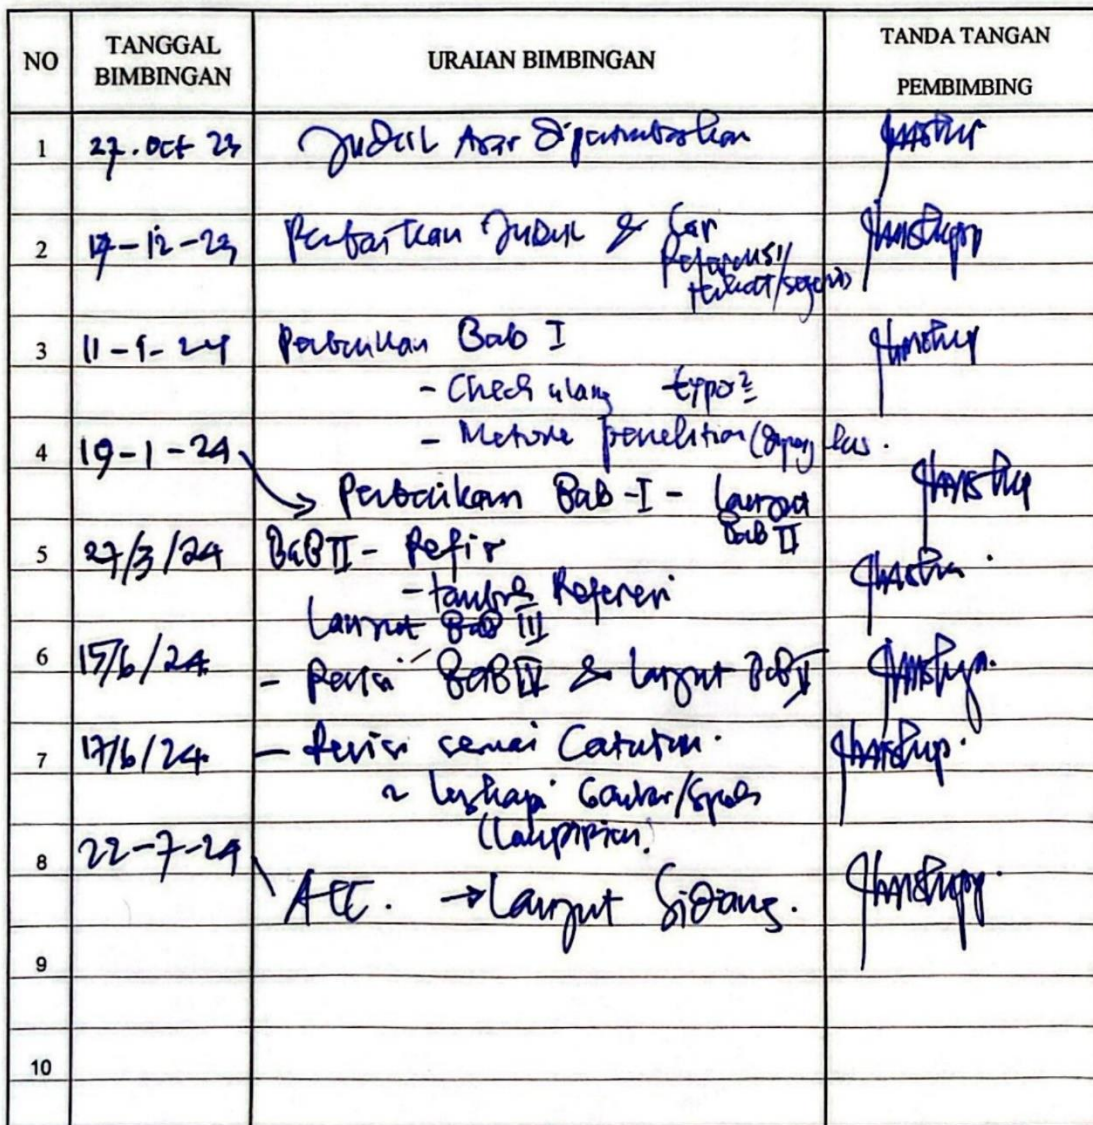 NO TANGGAL BIMBINGAN URAIAN BIMBINGAN TANDA TANGAN PEMBIMBING
1 27. Oct 23 Judul Agar diperimbaskan
2 17-12-23 Perbaikan Judul & Cari
Referensi
terkait/sejenis
3 11-1-24 Perbaikan Bab I
- Check ulang typo2
- Metode penelitian (diperjelas.
4 19-1-24 Perbaikan Bab-I - Lanjut
Bab II
5 27/3/24 BAB II - Refisi
- tambah Referensi
Lanjut Bab III
6 15/6/24 - Revisi BAB IV & lanjut BAB V
7 17/6/24 - Revisi sesuai Catatan.
lengkapi Gambar/
(Lampiran.
8 22-7-24 ACC. → Lanjut Sidang.
9
10